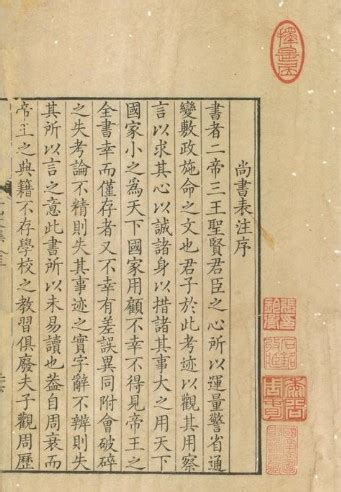 尚書表注序
書者二帝三王聖賢君臣之心所以運量警省通
變敷政施命之文也君子於此考迹以觀其用察
言以求其心以誠諸身以措諸其事大之用天下
國家小之爲天下國家用顧不幸不得見帝王之
全書幸而僅存者又不幸有差誤異同附會破碎
之失考論不精則失其事迹之實字辭不辨則失
其所以言之意此書所以未易讀也蓋自周衰而
帝王之典籍不存學校之教習俱廢夫子觀周歷